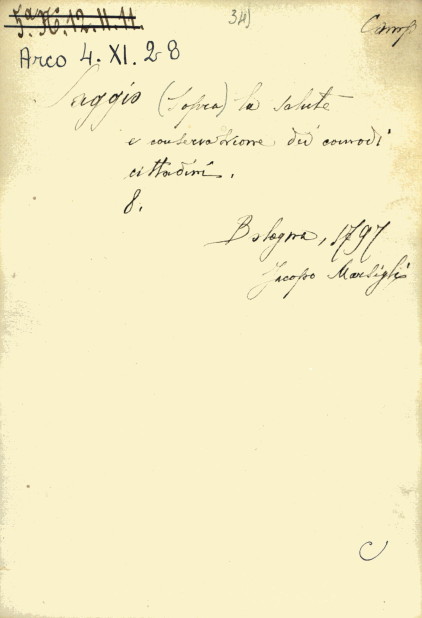 34)
Camp
Arco 4. XI. 28
Saggio (Sopra) la salute
e conservazione dei comodi
cittadini.
8.
Bologna, 1797
Jacopo Marsigli